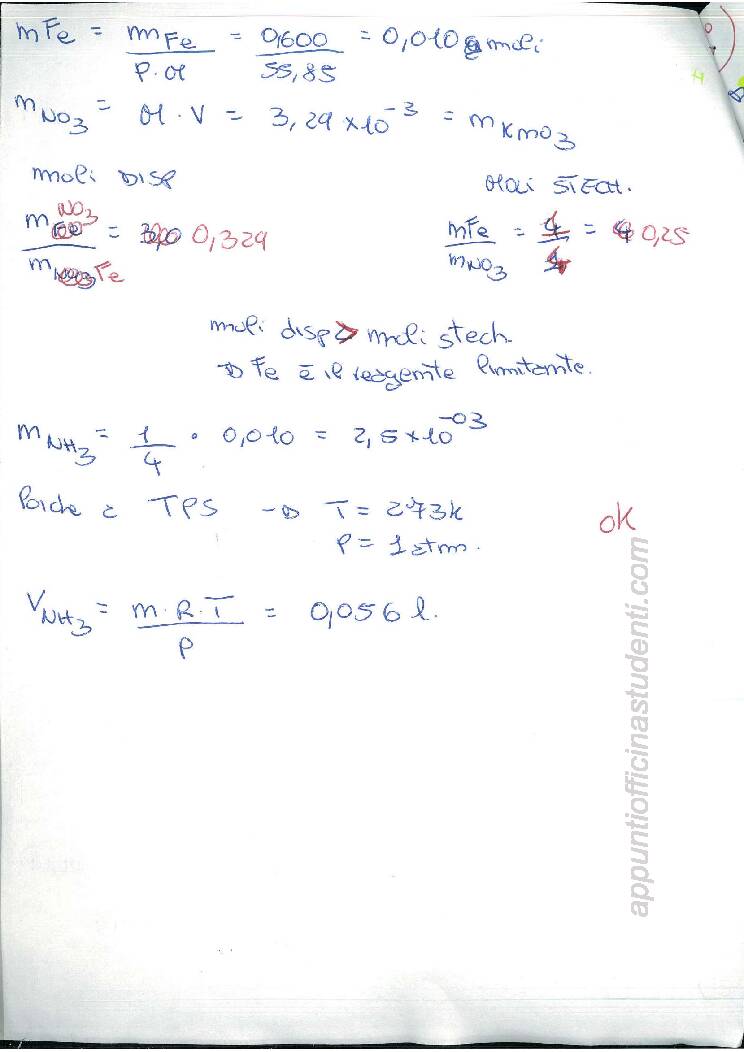 mFe = mFe / P.M = 0,600 / 55,85 = 0,010 moli
mNO3 = M . V = 3,29 x 10^-3 = mKNO3
moli DISP
Moli STECH.
mNO3 / mFe = 0,329
mFe / mNO3 = 0,25
moli disp > moli stech.
→ Fe è il reagente limitante.
mNH3 = 1/4 . 0,010 = 2,5 x 10^-03
Poiche a TPS → T = 273K
P = 1 atm.
ok
VNH3 = m.R.T / P = 0,056 l.
appuntiofficinastudenti.com